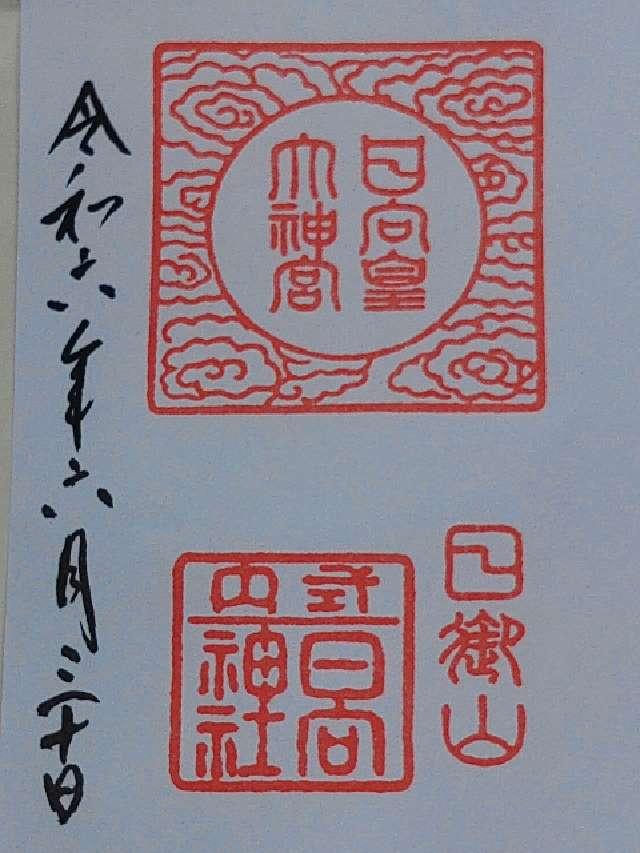 日向皇
大神宮
日御山
式内
日向
神社
令和六年六月三十日